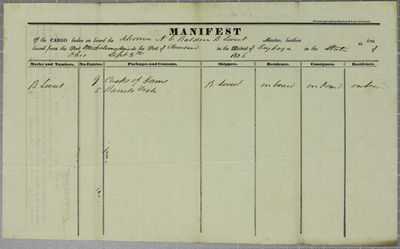 MANIFEST
Of the CARGO taken on board the Schooner A. E. Balden B. Sweet Master, burthen tons
bound from the Port to the Port of Cleveland in the District of Cuyahoga in the State of
Ohio Sept 8th 1836
Marks and Numbers. No. Entries. Packages and Contents. Shippers. Residence. Consignees. Residence.
B Sweet 9 Casks of Hams B Sweet on board on board on board
5 Barrels Fish